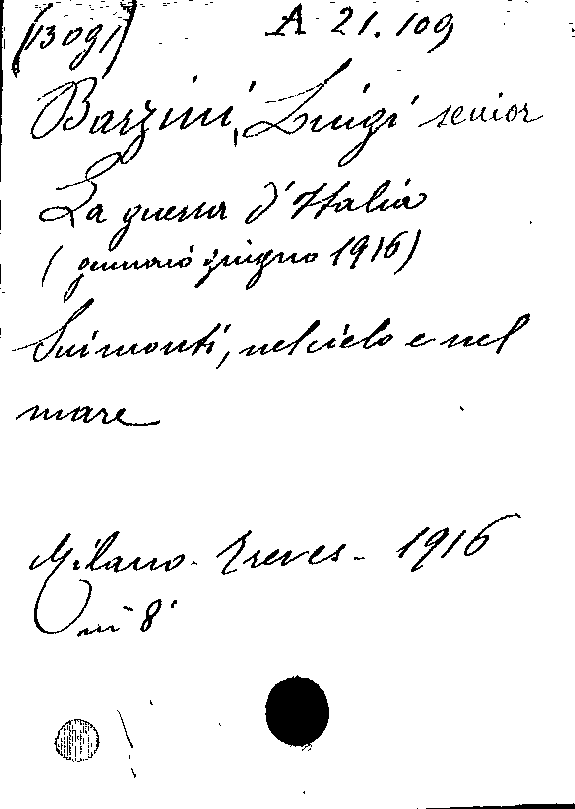 (13091) A 21.109
Barzini, Luigi senior
La guerra d'Italia
(gennaio giugno 1916)
Sui monti, nel cielo e nel
mare
Milano - Treves - 1916
in 8°